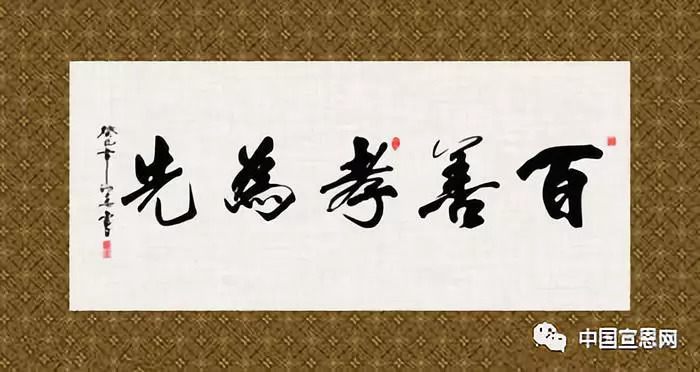 百善孝為先
癸巳年
中国宣恩网